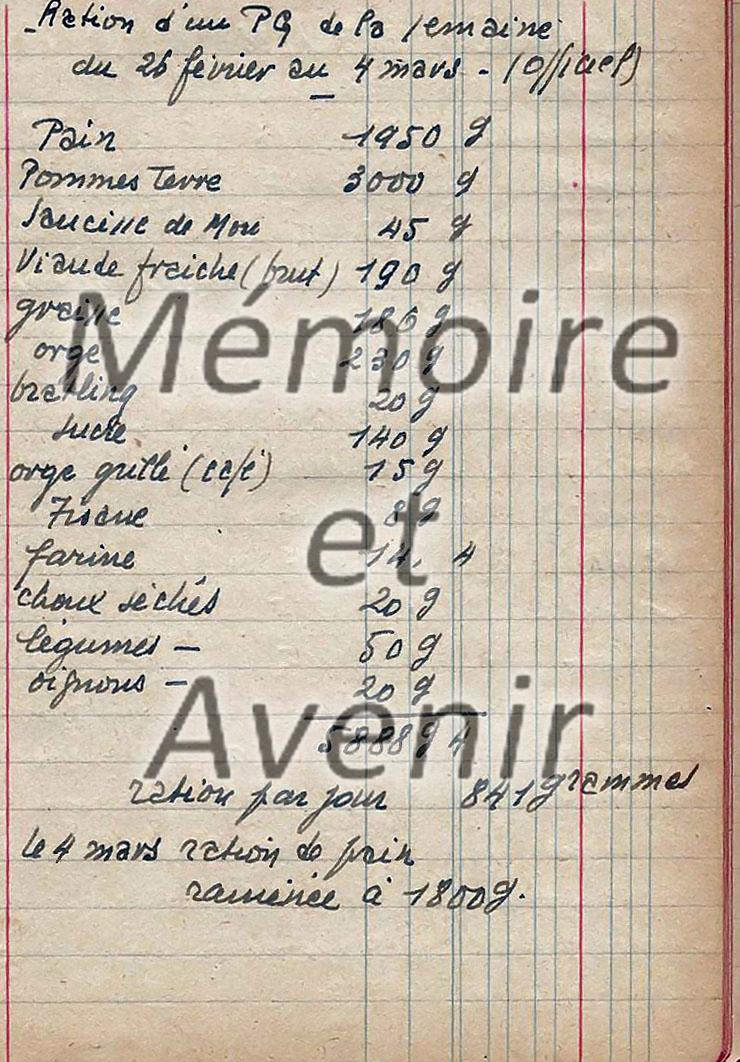 Ration d'un PG de la semaine
du 26 février au 4 mars - (officiel)
Pain 1950 g
Pommes Terre 3000 g
saucisse de Mou 45 g
Viande fraiche (brut) 190 g
graisse 186 g
orge 230 g
bratling 20 g
sucre 140 g
orge grillé (café) 15 g
Tisane 8 g
farine 14, 4
choux séchés 20 g
légumes — 50 g
oignons — 20 g
5888 g 4
ration par jour 841 grammes
le 4 mars ration de pain
ramenée à 1800 g.
Mémoire
et
Avenir